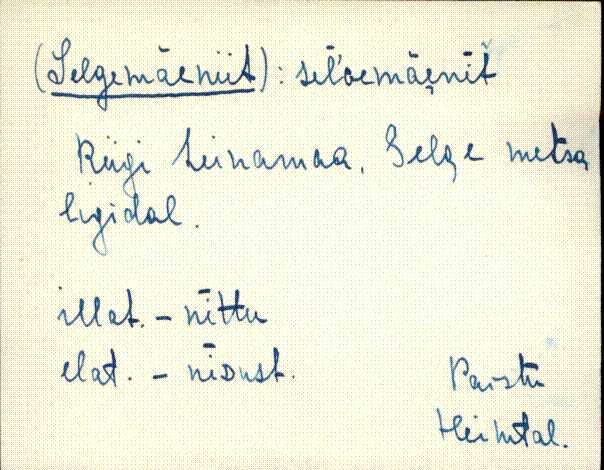 (Selgemäeniit): sel'Gemäe̬nīt̆
Riigi heinamaa, Selge metsa
ligidal.
illat. – nīttu
elat. – nīDust.
Paistu
Heimtal.